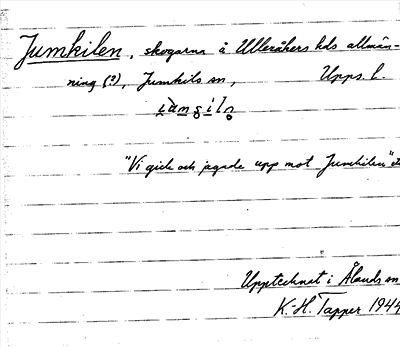 Jumkilen, skogarna å Ulleråkers hds allmän-
ning (?), Jumkils sn, Upps. l.
"Vi gick och jagade upp mot Jumkilen"
Upptecknat i Ålands sn
K.-H. Tapper 1944